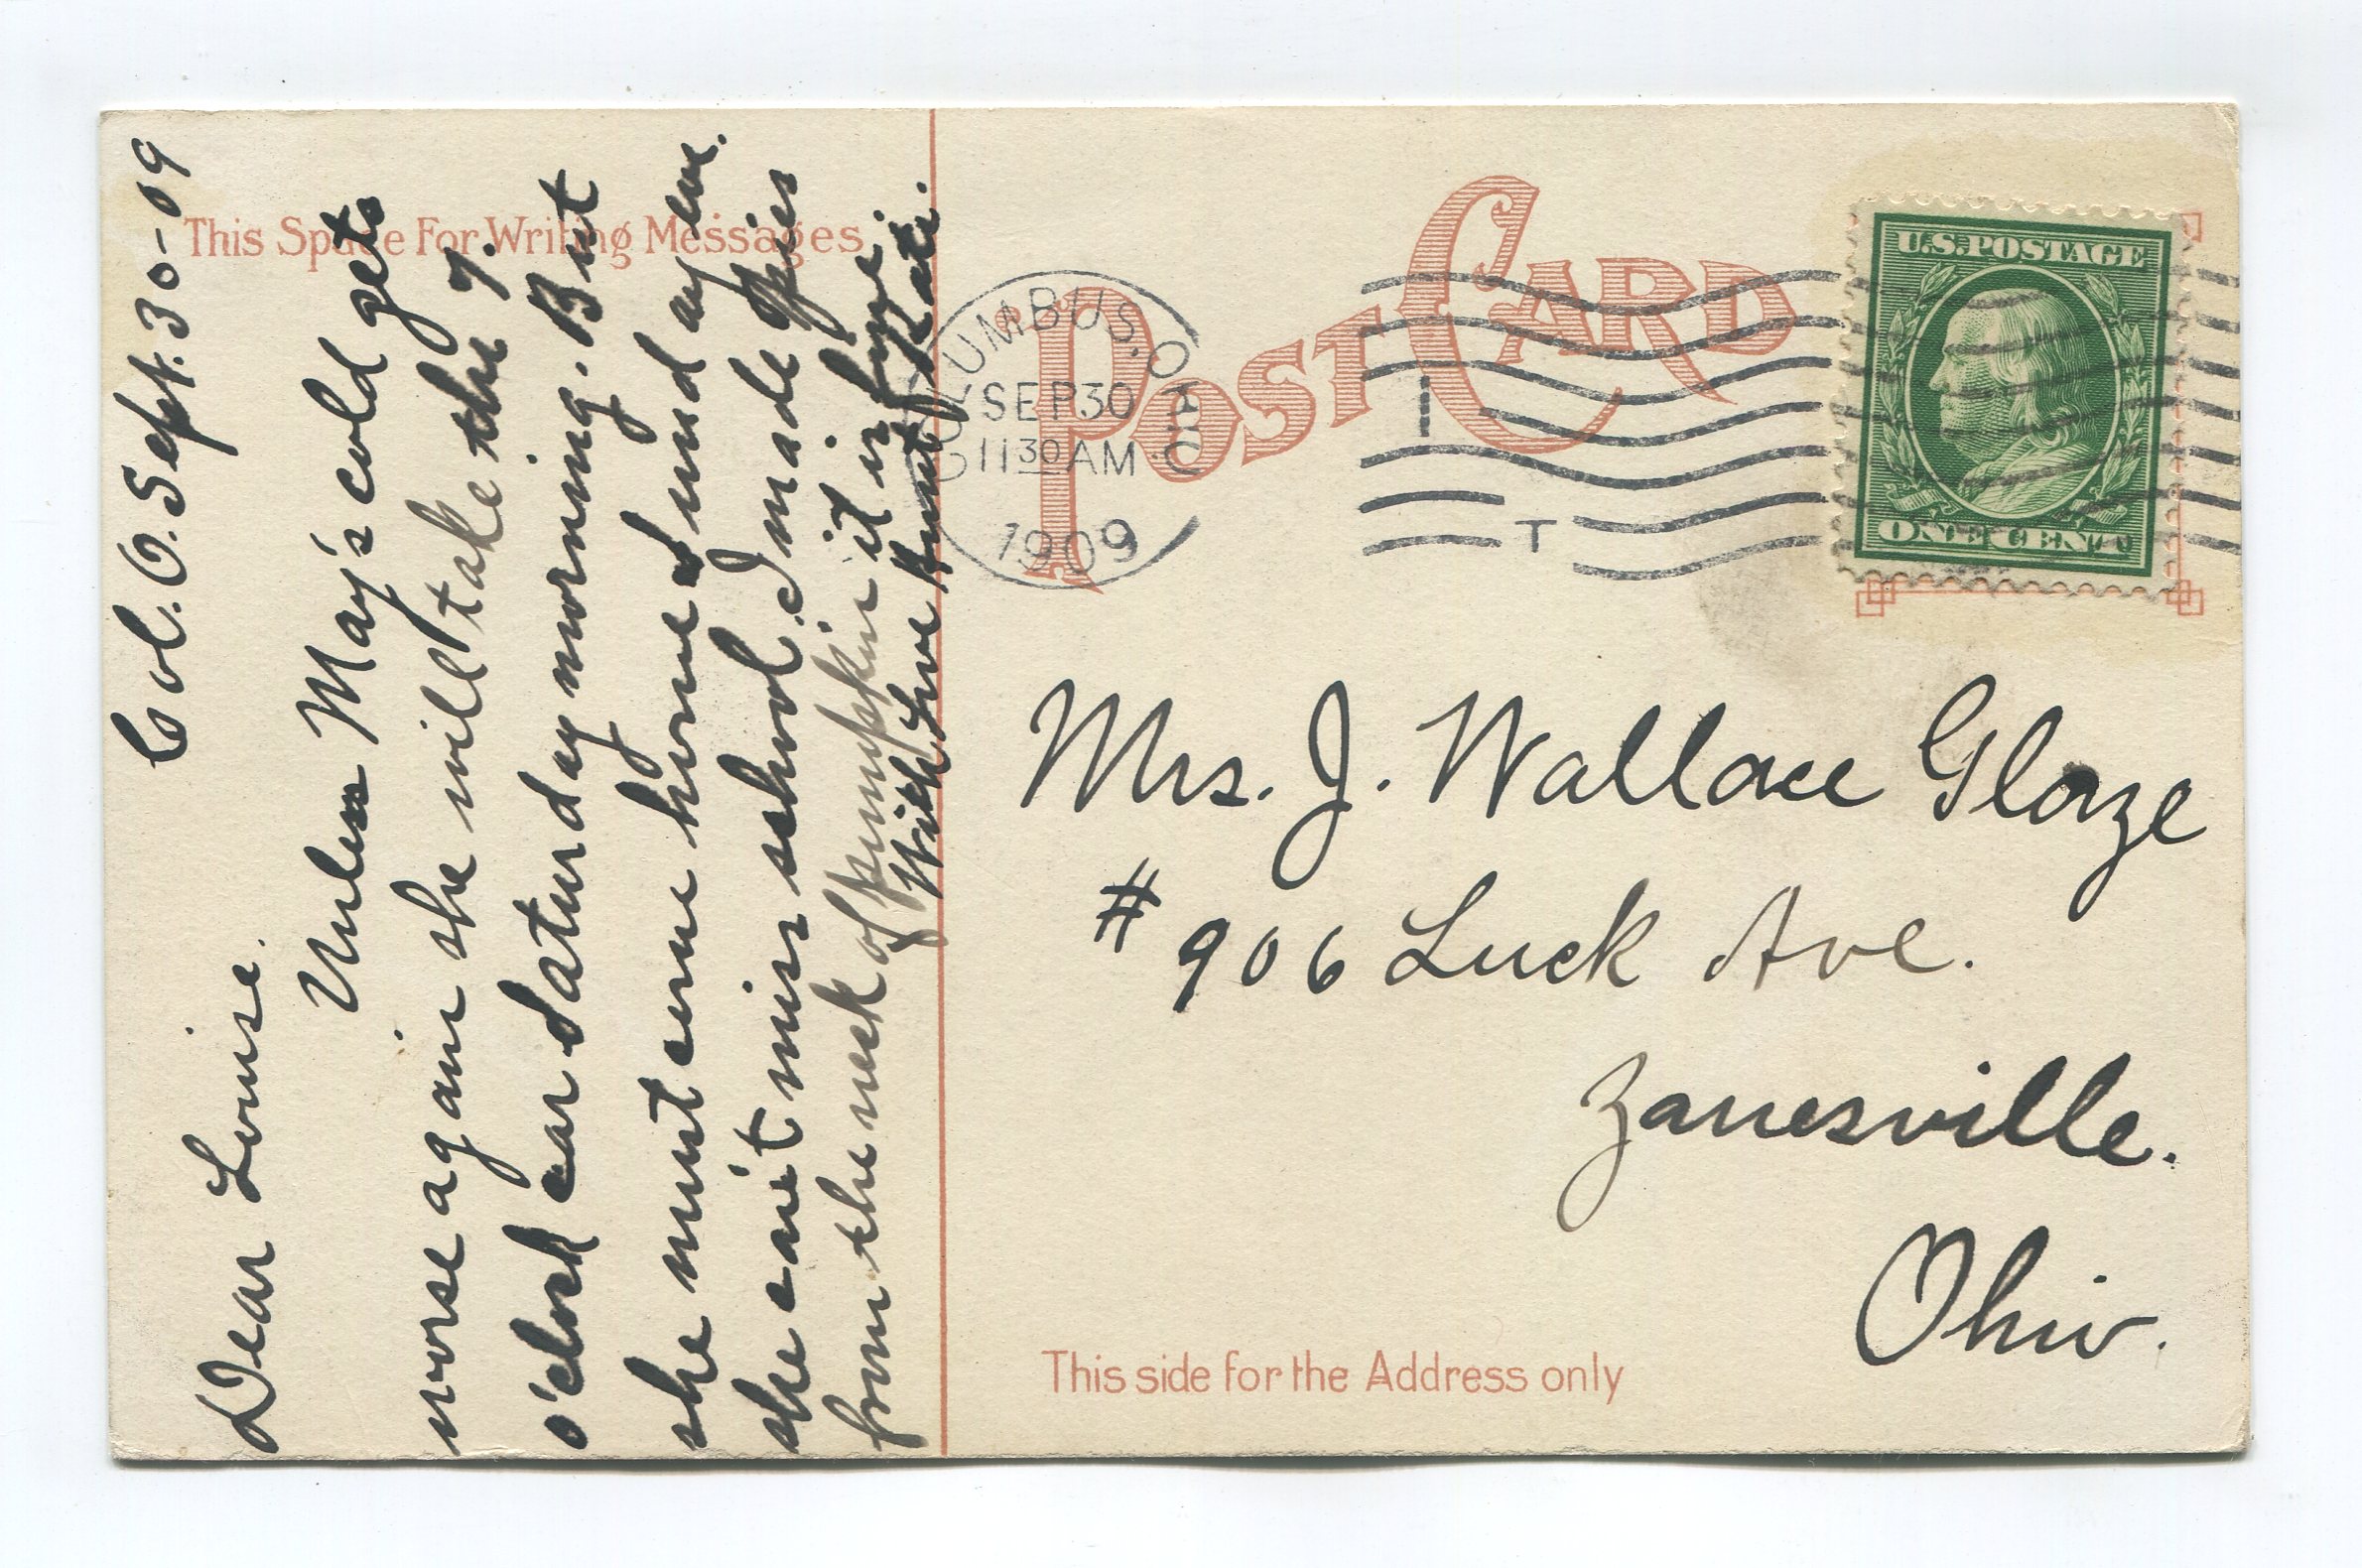 This Space For Writing Messages
Col. O. Sept. 30-09
Dear Louise.
Unless May's cold gets
worse again she will take the 7.
o'clock car Saturday morning. But
she must come home Sunday eve.
she can't miss school. I made pies
from the neck of pumpkin it is fine.
With Love Aunt Kate.
POST CARD
COLUMBUS. OHIO
SEP 30
11 30 AM
1909
I
T
U.S. POSTAGE
ONE CENT
Mrs. J. Wallace Glaze
# 906 Luck Ave.
Zanesville.
Ohio.
This side for the Address only